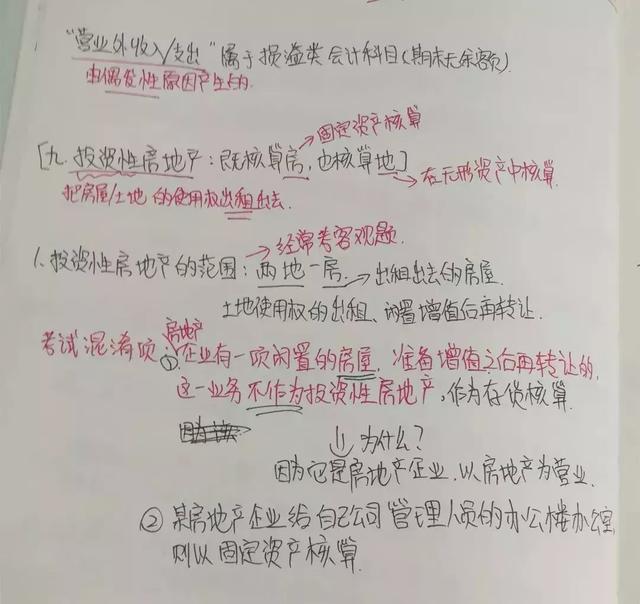 “营业外收入/支出”属于损溢类会计科目(期末无余额).
由偶发性原因产生的.
固定资产核算
[九. 投资性房地产：既核算房, 也核算地]
在无形资产中核算.
把房屋/土地 的使用权出租出去.
经常考客观题.
1. 投资性房地产的范围：两地一房. 出租出去的房屋.
土地使用权的出租、闲置增值后再转让.
房地产
考试混淆项 ①. 企业有一项闲置的房屋, 准备增值之后再转让的,
这一业务不作为投资性房地产, 作为存货核算.
为什么？
因为它是房地产企业. 以房地产为营业.
② 某房地产企业给自己公司管理人员的办公楼办公室
则以固定资产核算.